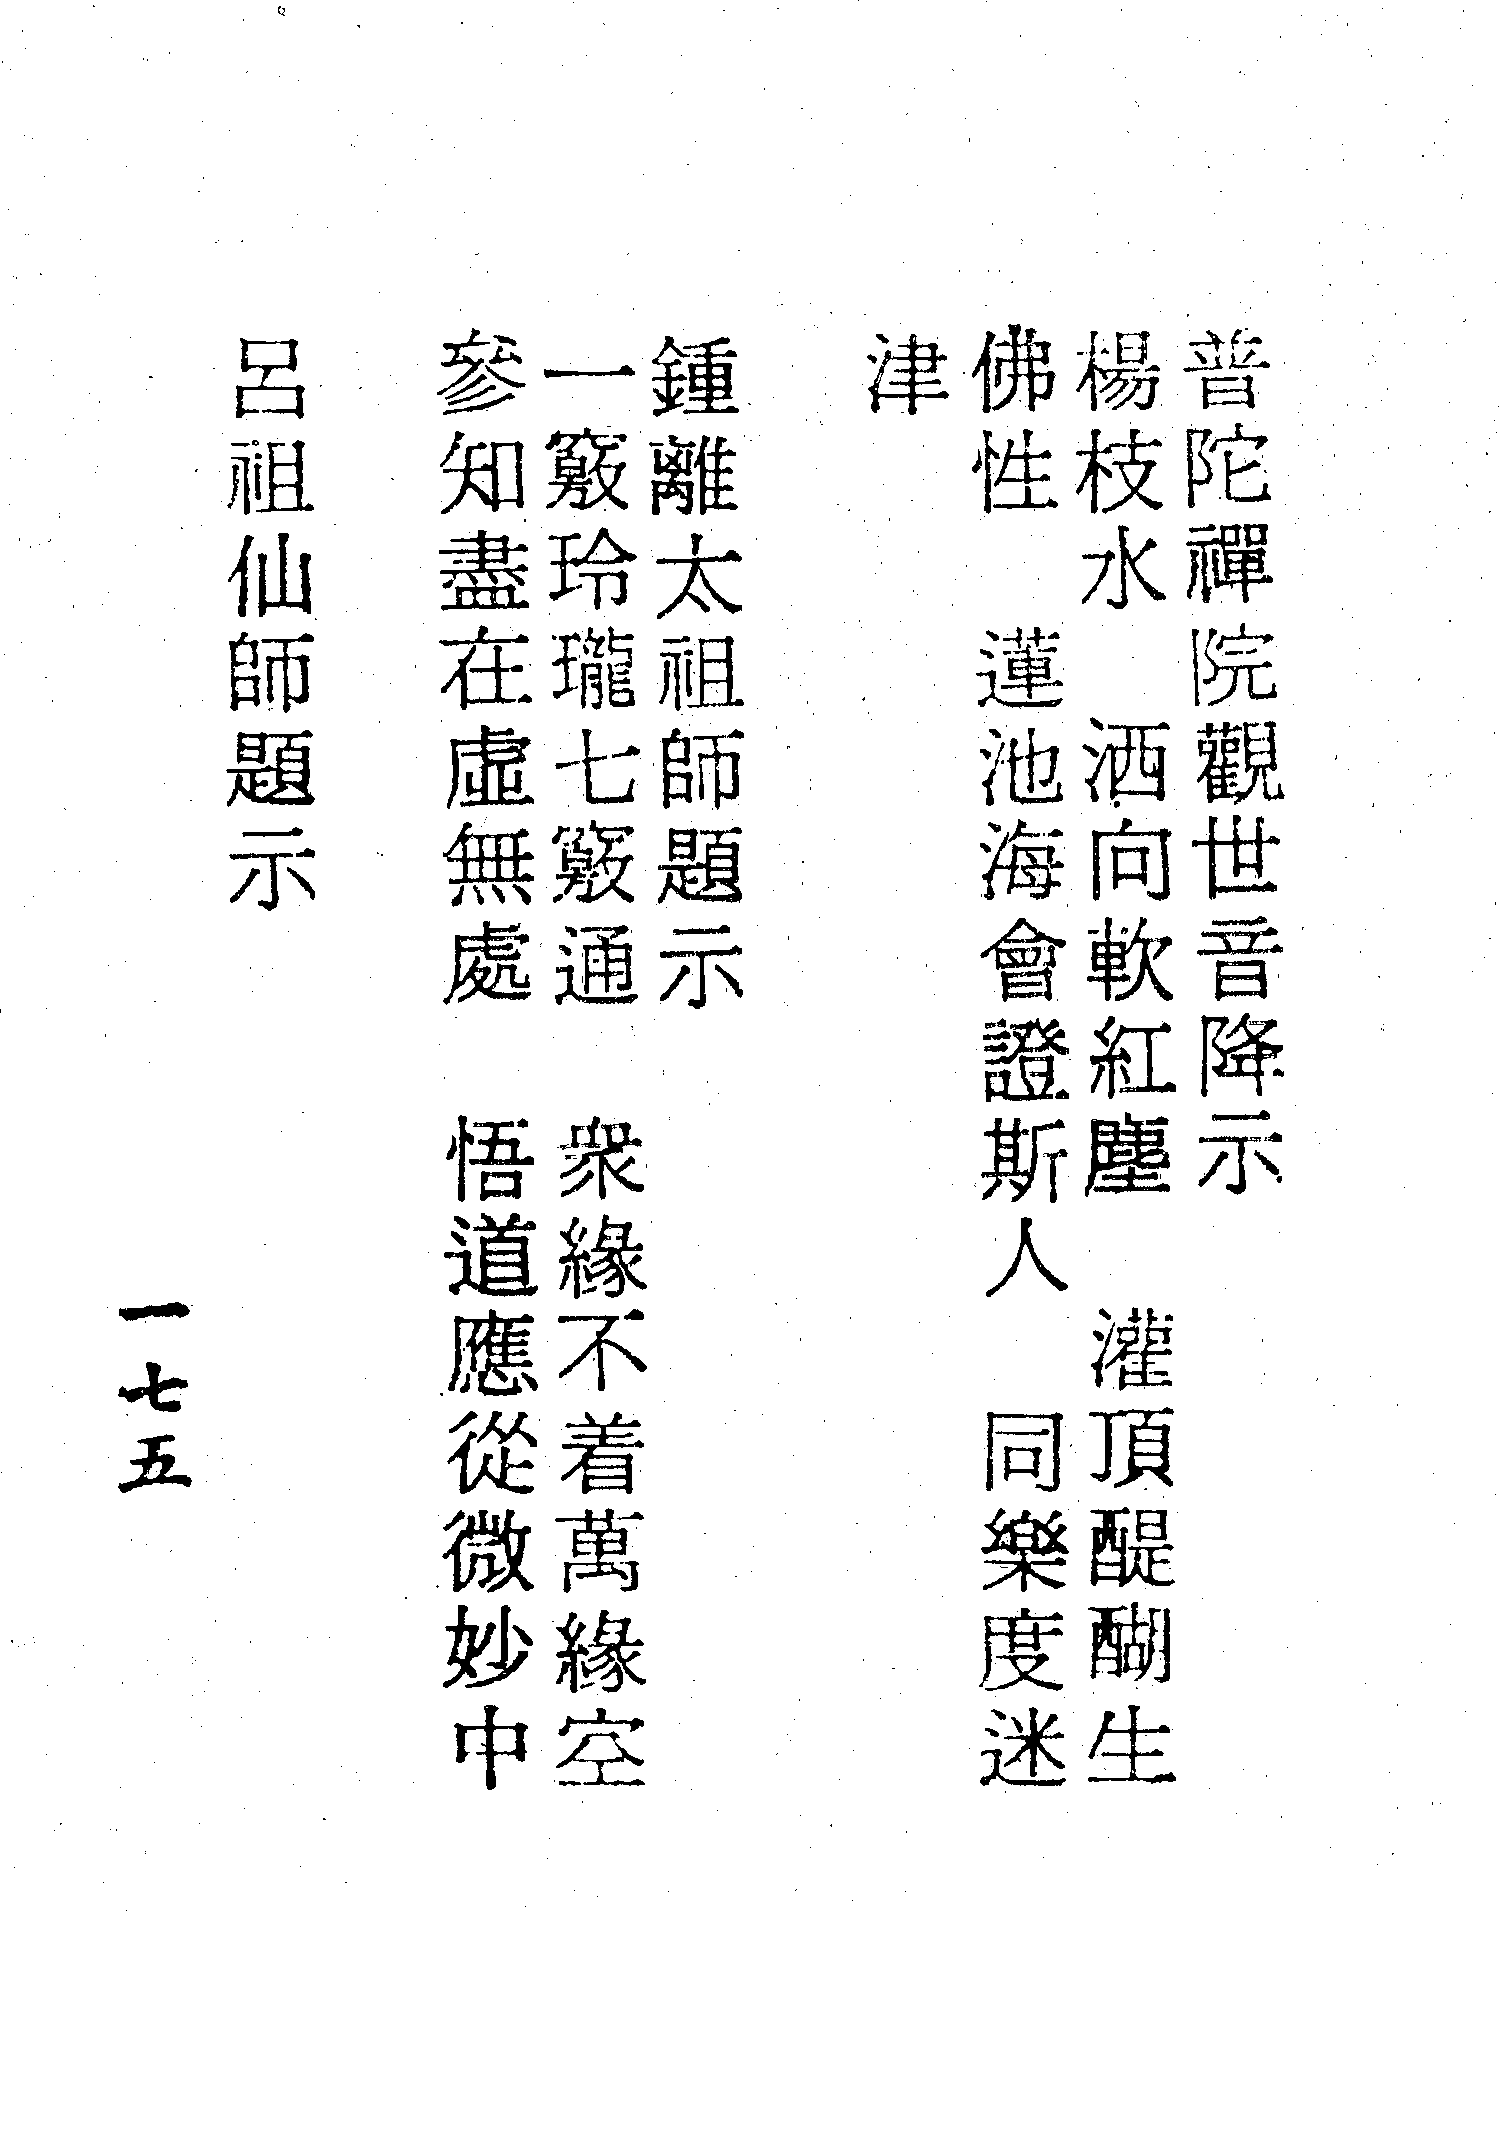 普陀禪院觀世音降示
楊枝水　洒向軟紅塵　灌頂醍醐生
佛性　蓮池海會證斯人　同樂度迷
津
鍾離太祖師題示
一竅玲瓏七竅通　衆緣不着萬緣空
參知盡在虛無處　悟道應從微妙中
呂祖仙師題示
一七五